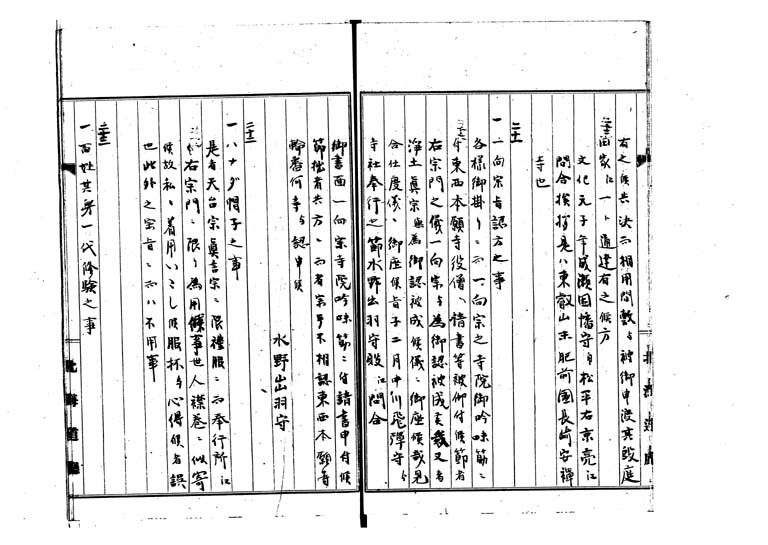 有之候共決而相用間敷与被御申渡其段庭
田家江一ト通達有之候方
文化元子年成瀬因幡守与松平右京亮江
問合挨拶是ハ東叡山末肥前国長崎安禅
寺也
二十一
一一向宗与認方之事
各様御掛リニ而一向宗之寺院御吟味筋ニ
付東西本願寺役僧ヘ請書等被仰付候節者
右宗門之儀一向宗与為御認被成候哉又者
浄土真宗与為御認被成候儀ニ御座候哉見
合仕度儀ニ御座候旨子二月中川飛騨守与
寺社奉行之節水野出羽守殿江問合
御書面一向宗寺院吟味節ニ付請書申付候
節拙者共方ニ而者宗号不相認東西本願寺
輪番何寺与認申候
水野出羽守
二十二
一ハナダ帽子之事
是者天台宗真言宗ニ限礼服ニ而奉行所江
右宗門ニ限リ為用候事世人襟巻ニ似寄
候故私ニ着用いたし候服杯与心得候者誤
也此外之宗旨ニ而ハ不用事
二十三
一百姓其身一代修験之事
北海道庁